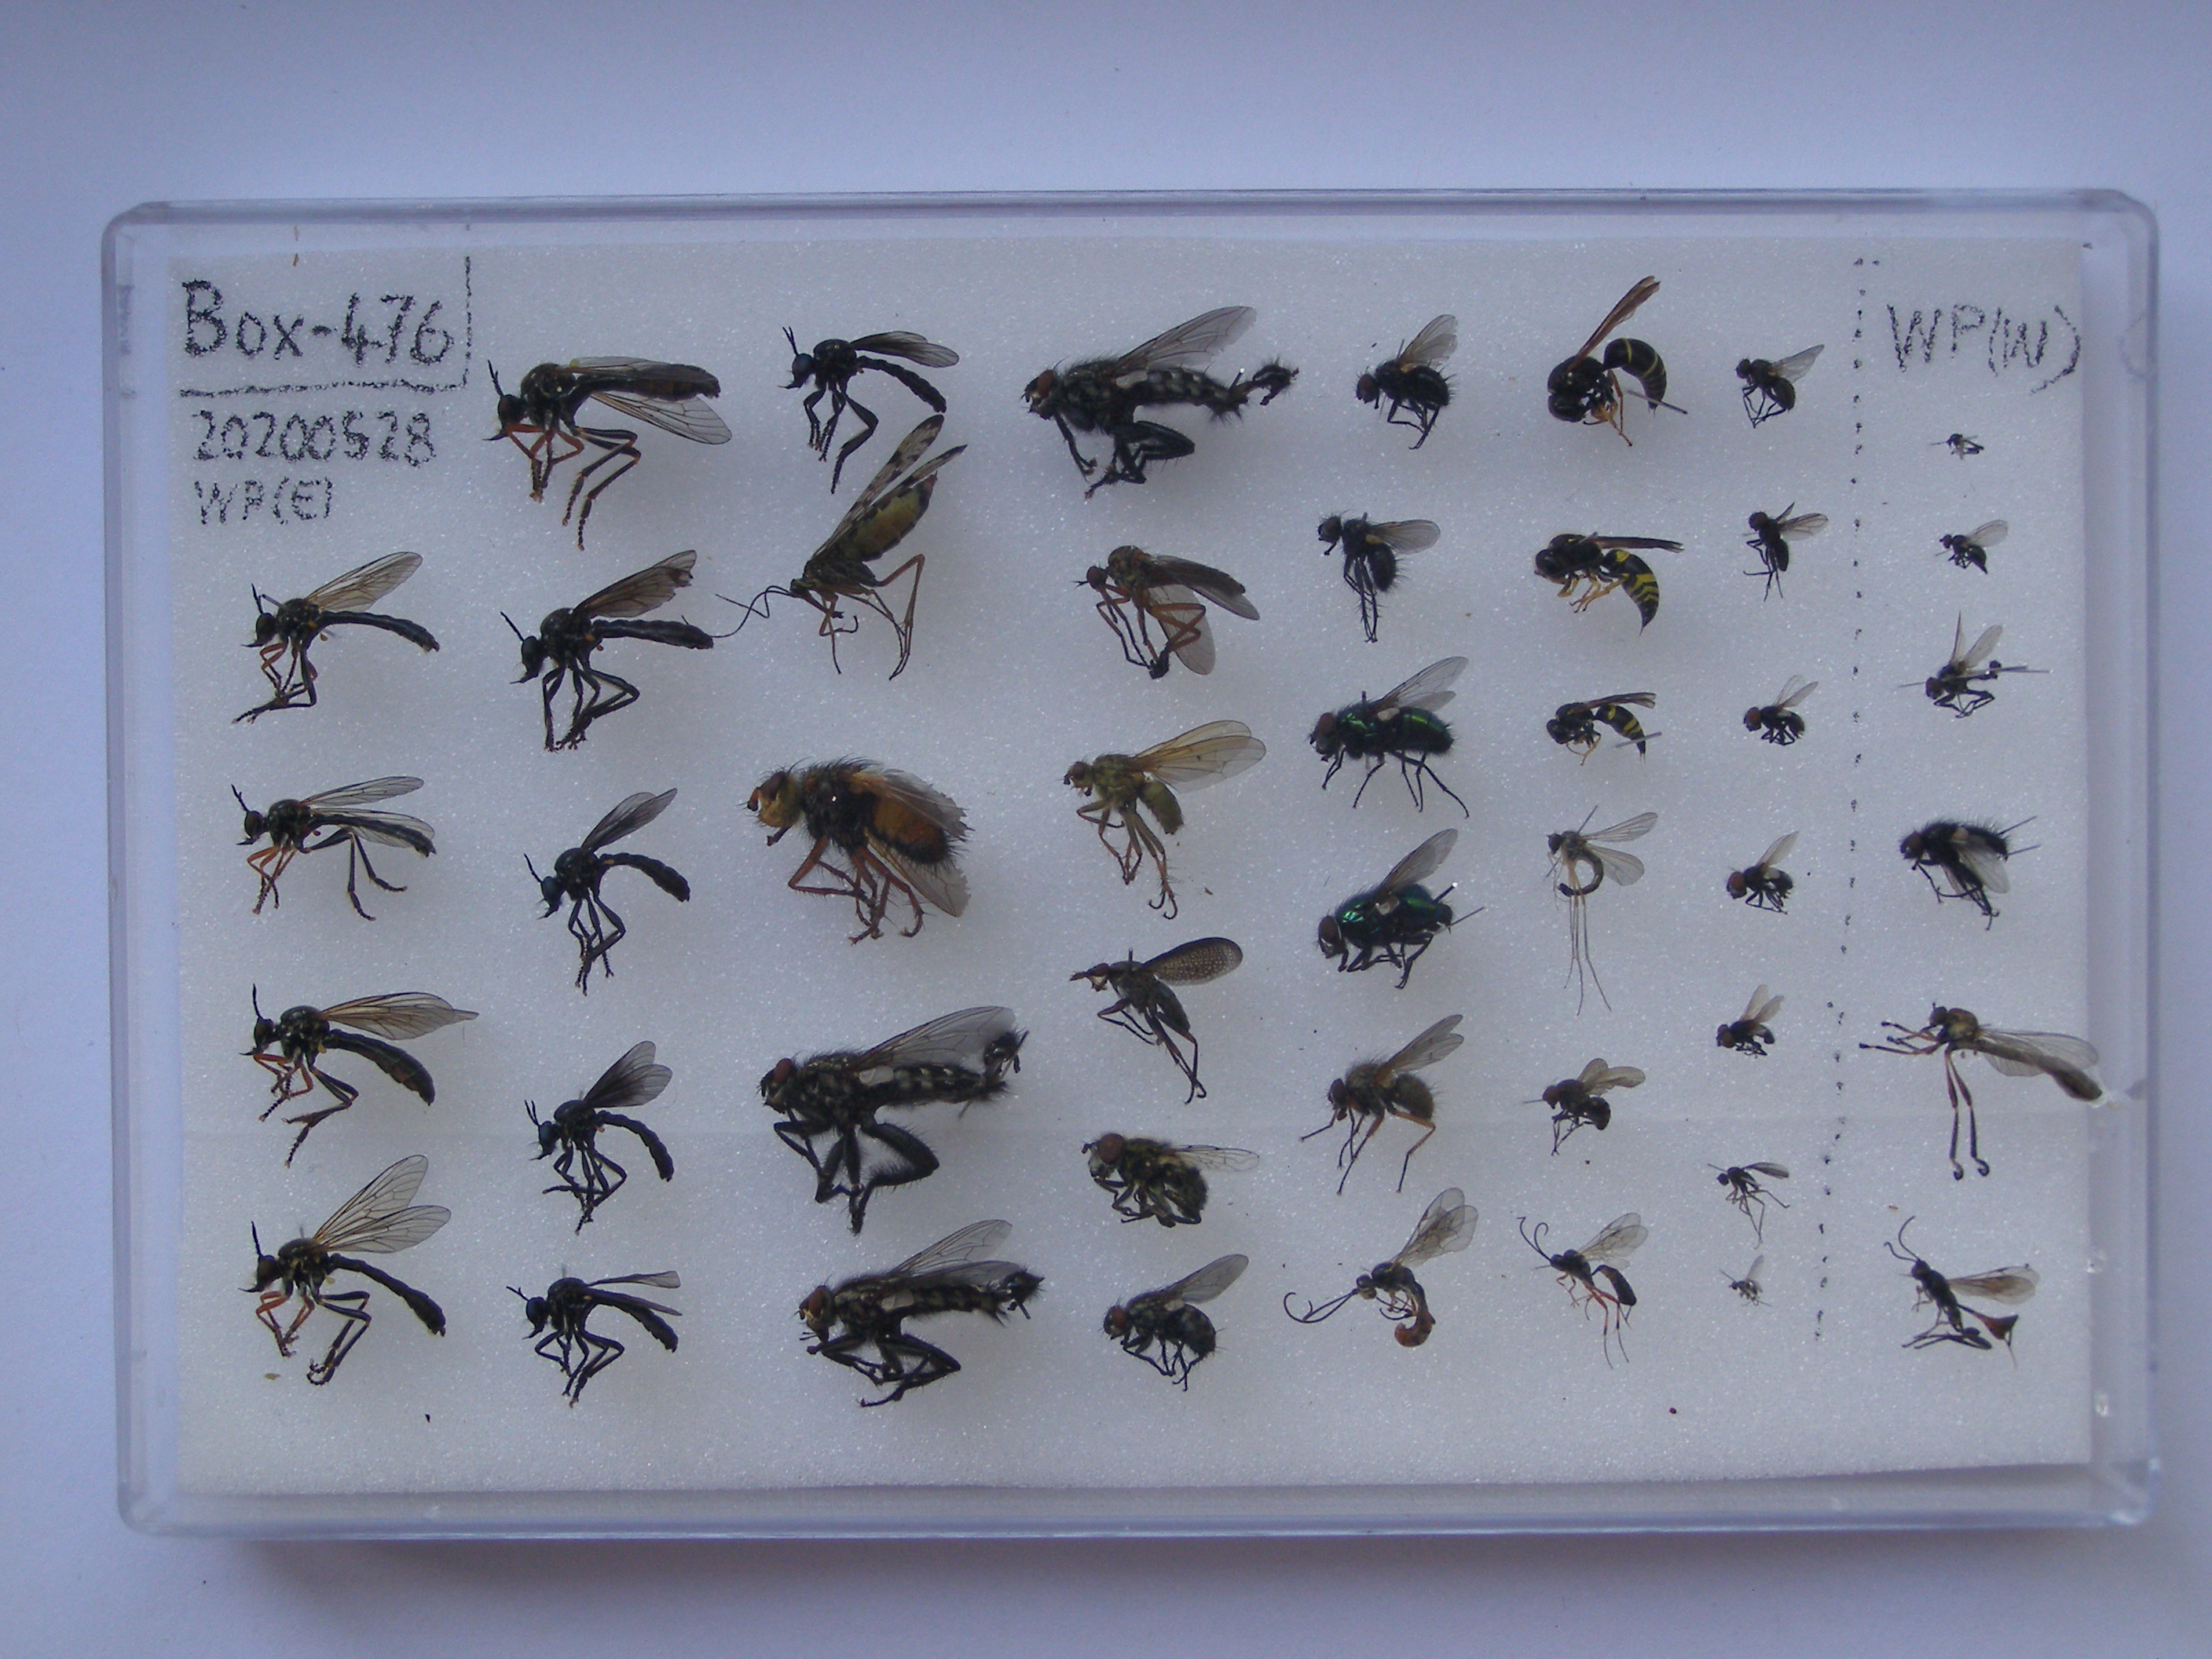 Box-476
20200528
WP(E)
WP(W)